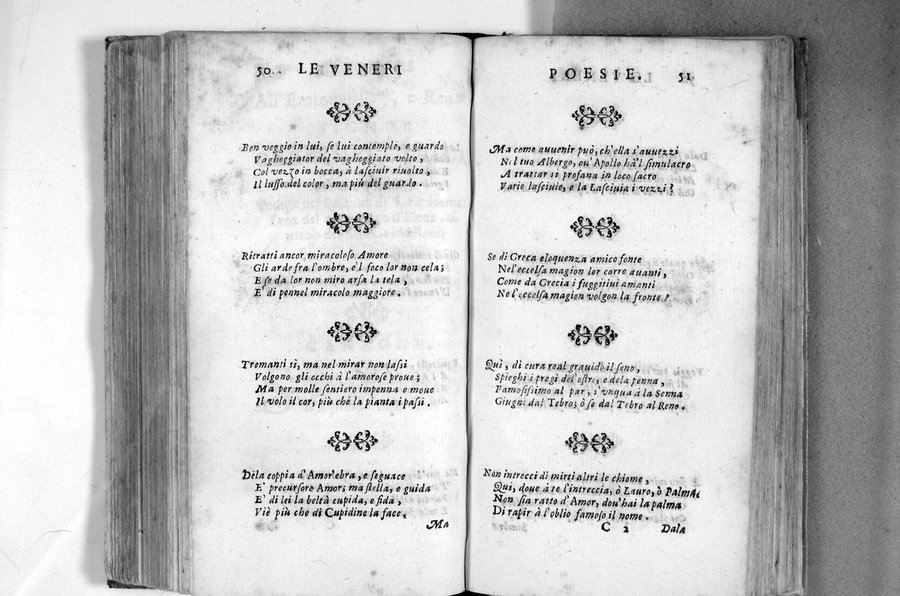 50. LE VENERI
Ben veggio in lui, se lui contemplo, e guardo
Vagheggiator del vagheggiato volto,
Col vezzo in bocca, à lasciuir riuolto,
Il lusso del color, ma più del guardo.
Ritratti ancor miracoloso Amore
Gli arde fra l'ombre, e'l foco lor non cela;
E se da lor non miro arsa la tela,
E' di pennel miracolo maggiore.
Tremanti sì, ma nel mirar non lassi
Volgono gli occhi à l'amorose proue;
Ma per molle sentiero impenna e moue
Il volo il cor, più chè la pianta i passi.
Dela coppia d'Amor'ebra, e seguace
E' precursore Amor; ma stella, e guida
E' di lei la beltà cupida, e fida,
Viè più che di Cupidine la face.
Ma
POESIE. 51
Ma come auuenir può, ch'ella s'auuezzi
Nel tuo Albergo, ou'Apollo hà'l simulacro
A trattar si profana in loco sacro
Varie lasciuie, e la Lasciuia i vezzi?
Se di Greca eloquenza amico fonte
Nel'eccelsa magion lor corre auanti,
Come da Grecia i fuggitiui amanti
Ne l'eccelsa magion volgon la fronte?
Quì, di cura real grauido il seno,
Spieghi i pregi del'ostro, e dela penna,
Famosissimo al par, s'vnqua à la Senna
Giugni dal Tebro; ò se dal Tebro al Reno.
Non intrecci di mirti altri le chiome,
Qui, doue à te l'intreccia, ò Lauro, ò Palma;
Non sia ratto d'Amor, dou'hai la palma
Di rapir à l'oblio famoso il nome.
C 2 Dala